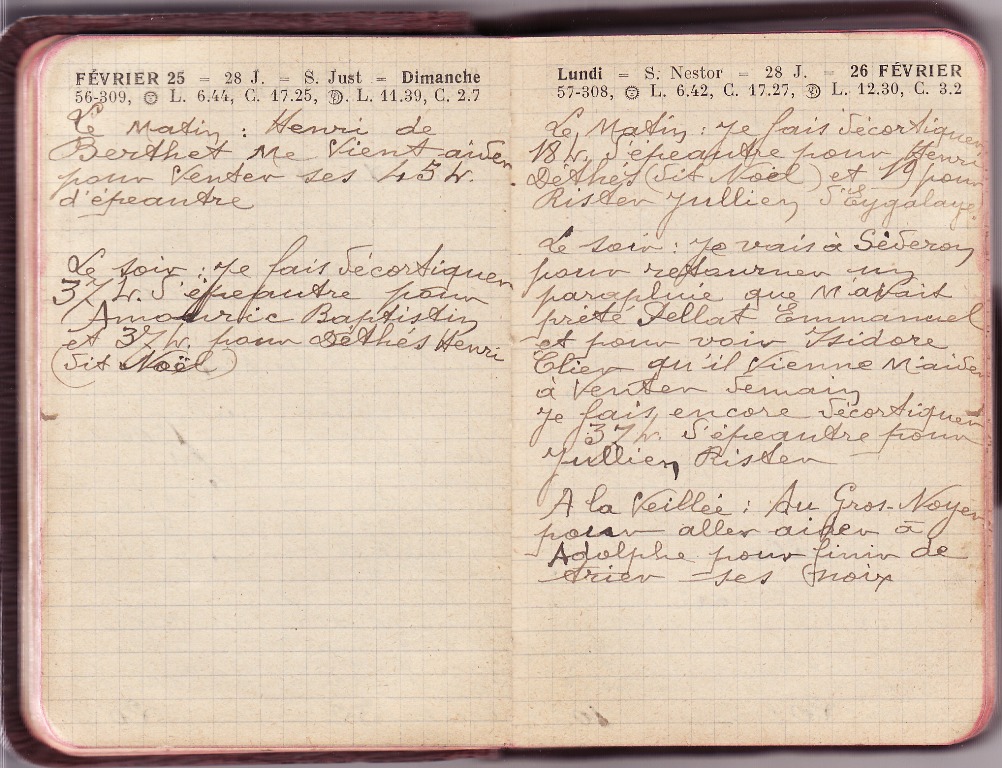 FÉVRIER 25 = 28 J. = S. Just = Dimanche
56-309, L. 6.44, C. 17.25, L. 11.39, C. 2.7
Le Matin : Henri de
Berthet Me Vient aider
pour Venter ses 45 d.
d'épeautre
Le soir : Je fais décortiquer
37 d. d'épeautre pour
Amouric Baptistin
et 37 d. pour Déthès Henri
(dit Noël)
Lundi = S. Nestor = 28 J. = 26 FÉVRIER
57-308, L. 6.42, C. 17.27, L. 12.30, C. 3.2
Le Matin : Je fais décortiquer
18 d. d'épeautre pour Henri
Déthès (dit Noël) et 19 pour
Rister Jullien d'Eygalaye
Le soir : Je vais à Séderon
pour retourner un
parapluie que M'avait
prêté Pellat Emmanuel
et pour voir Isidore
Clier qu'il Vienne M'aider
à Venter demain
Je fais encore décortiquer
37 d. d'épeautre pour
Jullien Rister
A la Veillée : Au Gros-Noyer
pour aller aider à
Adolphe pour finir de
trier ses noix